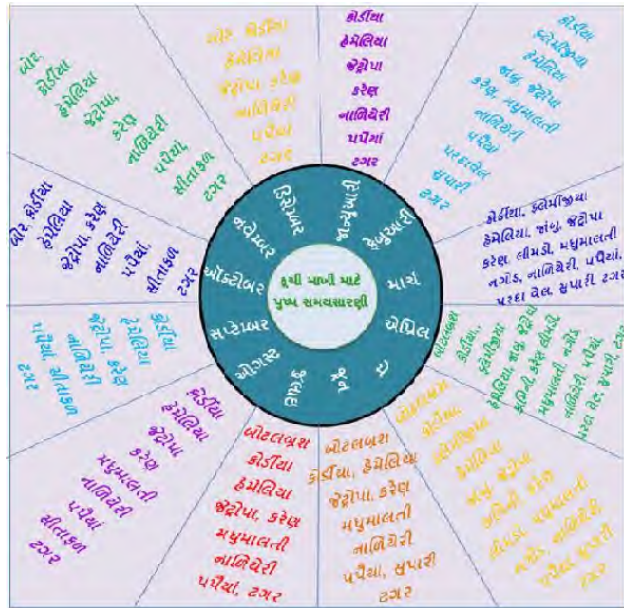 કુચી પાખી માટે
પુષ્પ સમયસારણી
જાન્યૂઆરી
ફેબ્રુઆરી
માર્ચ
એપ્રિલ
મે
જૂન
જુલાઇ
ઓગસ્ટ
સપ્ટેમ્બર
ઓક્ટોબર
નવેમ્બર
ડિસેમ્બર
કોર્ડીયા
હેમેલિયા
જેટ્રોપા
કરેણ
નાળિયેરી
પપૈયાં
ટગર
કોર્ડીયા
ફ્લેમીજીયા
હેમેલિયા
જાંબુ, જેટ્રોપા
કરેણ, મધુમાલતી
નાળિયેરી
પપૈયાં
પરદાવેલ
સુપારી
ટગર
કોર્ડીયા, ફ્લેમીજીયા
હેમેલિયા, જાંબુ, જેટ્રોપા
કરેણ, લીમડો, મધુમાલતી
નગોડ, નાળિયેરી, પપૈયાં,
પરદા વેલ, સુપારી ટગર
બોટલબ્રશ
કોર્ડીયા,
ફ્લેમીજીયા
હેમેલિયા, જાંબુ, જેટ્રોપા
કરેણ લીમડો
મધુમાલતી, નગોડ
નાળિયેરી પપૈયાં
પરદા વેલ, સુપારી ટગર
બોટલબ્રશ
કોર્ડીયા,
ફ્લેમીજીયા
હેમેલિયા
જાંબુ જેટ્રોપા
કરેણ
લીમડો, મધુમાલતી
નગોડ, નાળિયેરી,
પપૈયાં સુપારી
ટગર
બોટલબ્રશ
કોર્ડીયા, હેમેલિયા
જેટ્રોપા, કરેણ
મધુમાલતી
નાળિયેરી
પપૈયાં, સુપારી
ટગર
બોટલબ્રશ
કોર્ડીયા
હેમેલિયા
જેટ્રોપા, કરેણ
મધુમાલતી
નાળિયેરી
પપૈયાં, ટગર
કોર્ડીયા
હેમેલિયા
જેટ્રોપા
કરેણ
મધુમાલતી
નાળિયેરી
પપૈયાં
સીતાફળ
ટગર
કોર્ડીયા
હેમેલિયા
જેટ્રોપા, કરેણ
નાળિયેરી
પપૈયાં સીતાફળ
ટગર
બોર કોર્ડીયા
હેમેલિયા
જેટ્રોપા, કરેણ
નાળિયેરી
પપૈયાં,
સીતાફળ
ટગર
બોર,
કોર્ડીયા
હેમેલિયા
જેટ્રોપા,
કરેણ
નાળિયેરી
પપૈયાં,
સીતાફળ
ટગર
બોર કોર્ડીયા
હેમેલિયા
જેટ્રોપા, કરેણ
નાળિયેરી
પપૈયાં
ટગર